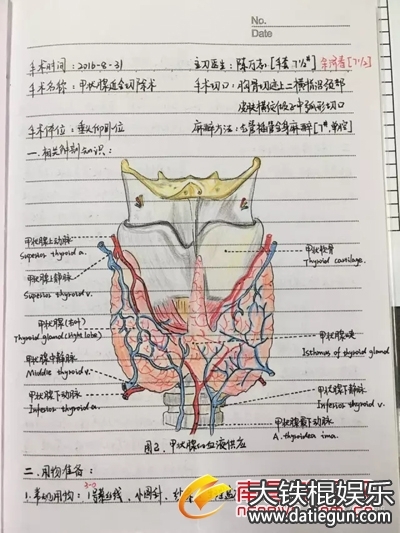 No.
Date
手术时间：2016-8-31 主刀医生：陈万志 [手套 7½#]
手术名称：甲状腺近全切除术 手术切口：胸骨切迹上二横指沿颈部
皮肤横纹做弧形切口
手术体位：垂头仰卧位 麻醉方法：气管插管全身麻醉
一.相关解剖知识：
甲状腺上动脉
Superior thyroid a.
甲状软骨
Thyroid cartilage.
甲状腺上静脉
Superior thyroid v.
甲状腺(右叶)
Thyroid gland (right lobe)
甲状腺峡
Isthmus of thyroid gland
甲状腺中静脉
Middle thyroid v.
甲状腺下动脉
Inferior thyroid a.
甲状腺下静脉
Inferior thyroid v.
甲状腺最下动脉
A. thyroidea ima.
图2.甲状腺的血液供应
二.用物准备：
1.基础用物：1号丝线、小圆针、
大铁棍娱乐
www.datiegun.com